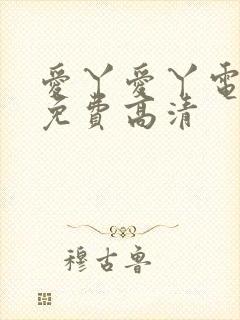 愛丫愛丫電
免費高清
穆古鲁